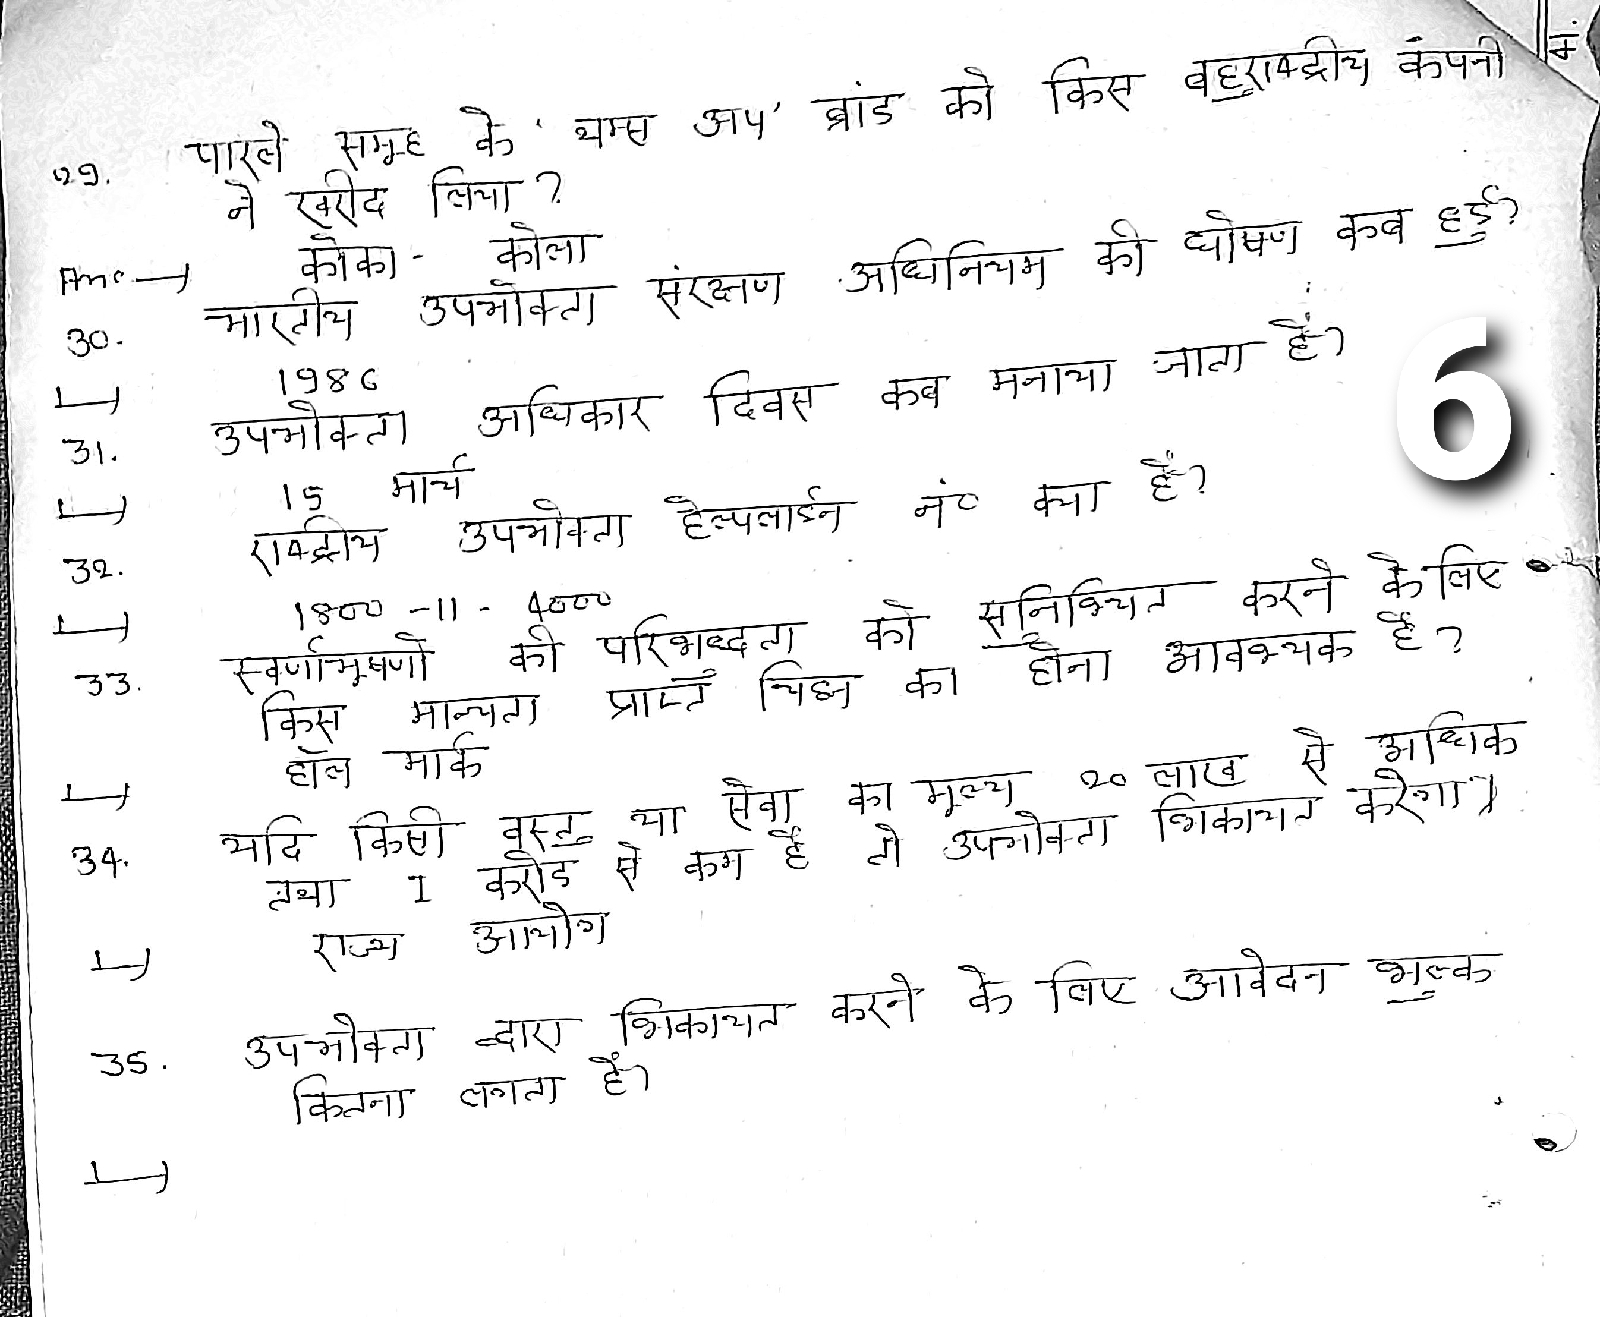 29. पारले समूह के 'थम्स अप' ब्रांड को किस बहुराष्ट्रीय कंपनी
ने खरीद लिया?
Ans → कोका - कोला
30. भारतीय उपभोक्ता संरक्षण अधिनियम की घोषण कब हुई?
→ 1986
31. उपभोक्ता अधिकार दिवस कब मनाया जाता हैं?
→ 15 मार्च
32. राष्ट्रीय उपभोक्ता हेल्पलाईन नं० क्या हैं?
→ 1800 -11 - 4000
33. स्वर्णाभूषणो की परिशुद्धता को सुनिश्चित करने के लिए
किस मान्यता प्राप्त चिह्न का होना आवश्यक हैं?
→ हॉल मार्क
34. यदि किसी वस्तु या सेवा का मूल्य 20 लाख से अधिक
तथा 1 करोड़ से कम हैं तो उपभोक्ता शिकायत करेगा?
→ राज्य आयोग
35. उपभोक्ता द्वारा शिकायत करने के लिए आवेदन शुल्क
कितना लगता हैं?
→
6